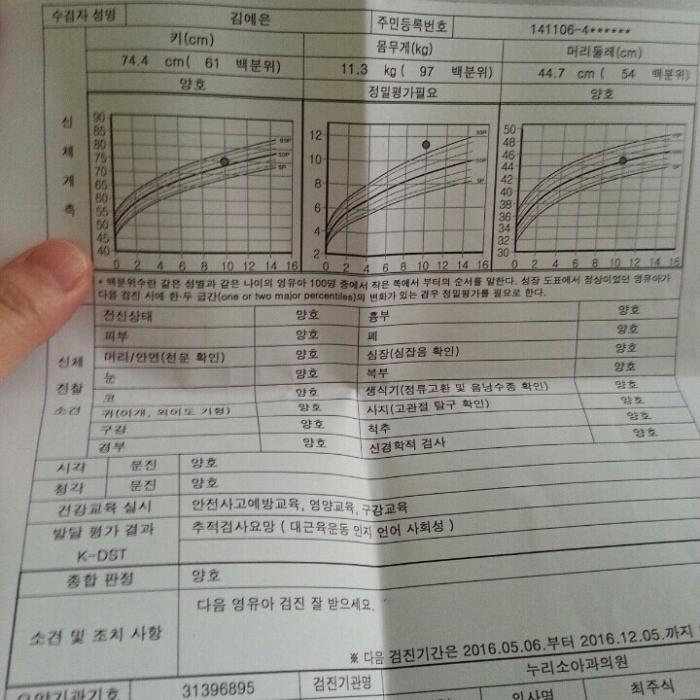 수검자 성명 김예은 주민등록번호 141106-4******
키(cm) 몸무게(kg) 머리둘레(cm)
74.4 cm( 61 백분위) 11.3 kg ( 97 백분위) 44.7 cm ( 54 백분위)
양호 정밀평가필요 양호
신체계측
90 85 80 75 70 65 60 55 50 45 40
95P 50P 5P
0 2 4 6 8 10 12 14 16
12 10 8 6 4 2
95P 50P 5P
0 2 4 6 8 10 12 14 16
50 48 46 44 42 40 38 36 34 32 30
95P 50P 5P
0 2 4 6 8 10 12 14 16
* 백분위수란 같은 성별과 같은 나이의 영유아 100명 중에서 작은 쪽에서 부터의 순서를 말한다. 성장 도표에서 정상이었던 영유아가
다음 검진 시에 한·두 급간(one or two major percentiles)의 변화가 있는 경우 정밀평가를 필요로 한다.
신체 진찰 소견
전신상태 양호 흉부 양호
피부 양호 폐 양호
머리/안면(천문 확인) 양호 심장(심잡음 확인) 양호
눈 양호 복부 양호
코 양호 생식기(정류고환 및 음낭수종 확인) 양호
귀(이개, 외이도 기형) 양호 사지(고관절 탈구 확인) 양호
구강 양호 척추 양호
경부 양호 신경학적 검사 양호
시각 문진 양호
청각 문진 양호
건강교육 실시 안전사고예방교육, 영양교육, 구강교육
발달 평가 결과 추적검사요망 ( 대근육운동 인지 언어 사회성 )
K-DST
종합 판정 양호
소견 및 조치 사항 다음 영유아 검진 잘 받으세요.
※ 다음 검진기간은 2016.05.06.부터 2016.12.05.까지
요양기관기호 31396895 검진기관명 누리소아과의원
의사명 최주식